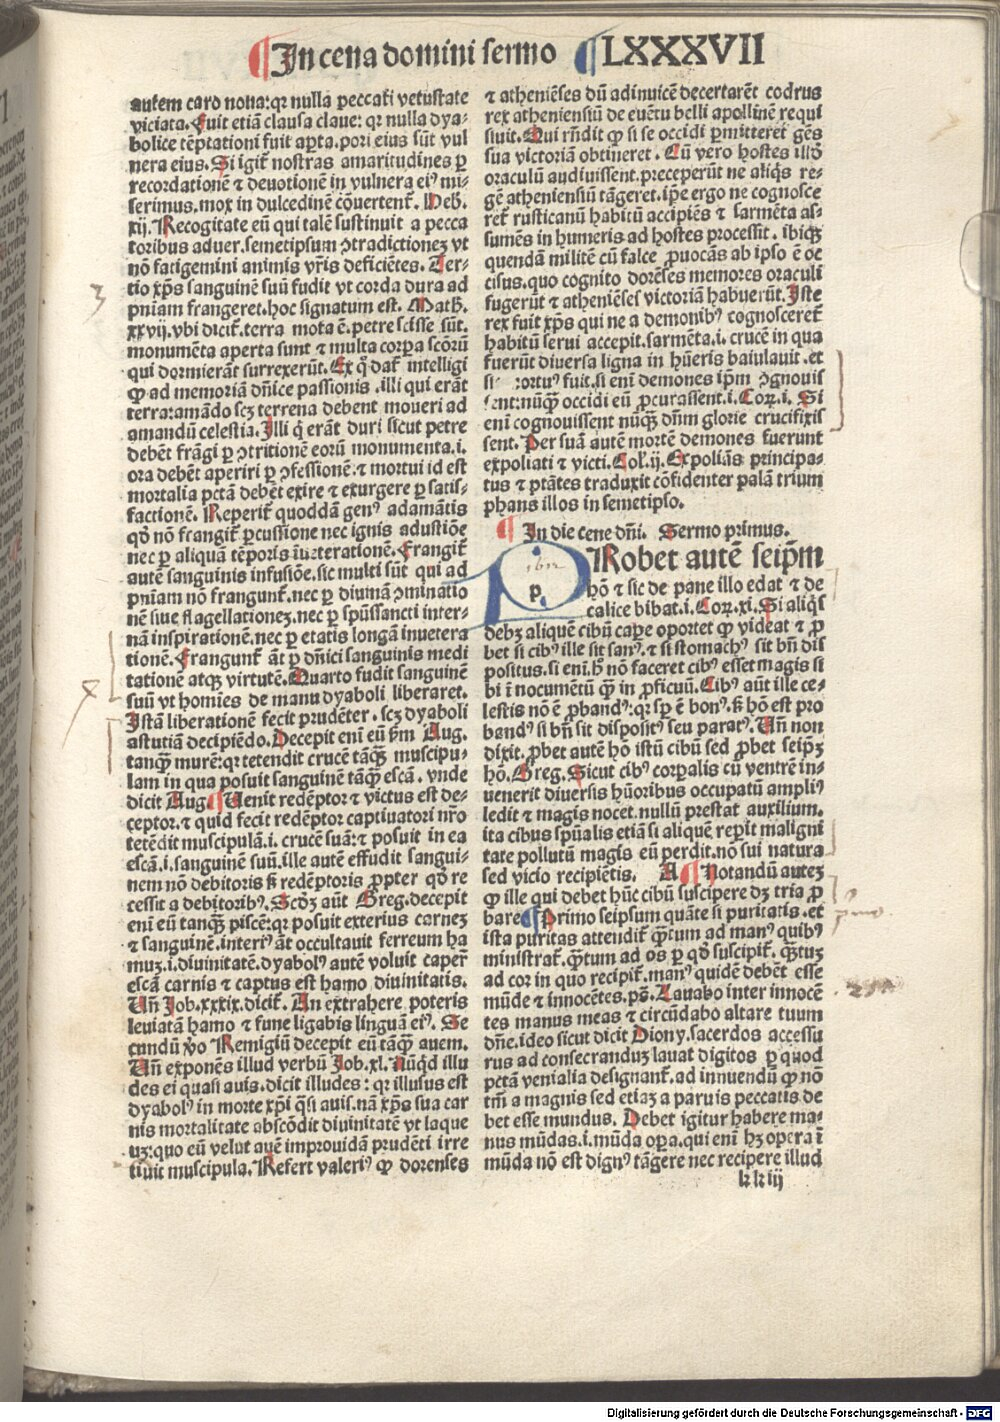 ¶In cena domini sermo ¶LXXXVII
autem caro noua: qꝛ nulla peccati vetustate
viciata. Fuit etiā clausa claue: qꝛ nulla dya-
bolice tēptationi fuit aꝑta. pori eius sūt vul
nera eius. Si igiť nostras amaritudines ꝑ
recordationē ⁊ deuotionē in vulnera eiꝰ mi-
serimus. mox in dulcedinē cōuertenť. Heb.
xij. Recogitate eū qui talē sustinuit a pecca
toribus aduer. semetipsum ꝯtradictionez vt
nō fatigemini animis vr̄is deficiētes. Ter-
tio xp̄s sanguinē suū fudit vt corda dura ad
pniam frangeret. hoc signatum est. Math.
xxvij. vbi diciť. terra mota ē. petre scisse sūt.
monumēta aperta sunt ⁊ multa corꝑa scōrū
qui dormierāt surrexerūt. Ex q̇ dať intelligi
ꝙ ad memoriā dn̄ice passionis. illi qui erāt
terra: amādo scz terrena debent moueri ad
amandū celestia. Illi q̇ erāt duri sicut petre
debēt frāgi ꝑ ꝯtritionē eorū monumenta. i.
ora debēt aperiri ꝑ ꝯfessionē. ⁊ mortui id est
mortalia pctā debēt exire ⁊ exurgere ꝑ satis-
factionē. Reperiť quoddā genꝰ adamātis
qd̄ nō frangiť ꝑcussione nec ignis adustiōe
nec ꝑ aliquā tēporis īueterationē. Frangiť
autē sanguinis infusiōe. sic multi sūt qui ad
pniam nō franguuť. nec ꝑ diuinā ꝯminatio
nē siue flagellationez. nec ꝑ spūssancti inter-
nā inspirationē. nec ꝑ etatis longā inuetera
tionē. Frangunť āt ꝑ dn̄ici sanguinis medi
tationē atqꝫ virtutē. Quarto fudit sanguinē
suū vt homīes de manu dyaboli liberaret.
Istā liberationē fecit prudēter. scz dyaboli
astutiā decipiēdo. Decepit eni eū pm̄ Aug.
tanqꝫ murē: qꝛ tetendit crucē tāqꝫ muscipu-
lam in qua posuit sanguinē tāqꝫ escā. vnde
dicit Aug. ¶Uenit redēptor ⁊ victus est de-
ceptor. ⁊ quid fecit redēptor captiuatori nr̄o
tetēdit muscipulā. i. crucē suā: ⁊ posuit in ea
escā. i. sanguinē suū. ille autē effudit sangui-
nem nō debitoris sꝫ redēptoris ꝓpter qd̄ re
cessit a debitoribꝰ. Scd̄z aūt Greg. decepit
eni eū tanqꝫ piscē: qꝛ posuit exterius carnez
⁊ sanguinē. interiꝰ āt occultauit ferreum ha
muz. i. diuinitatē. dyabolꝰ autē voluit caper̄
escā carnis ⁊ captus est hamo diuinitatis.
Un̄ Job. xxxix. diciť. An extrahere poteris
leuiatā hamo ⁊ fune ligabis linguā eiꝰ. Se
cundū v̄o Remigiū decepit eū tāqꝫ auem.
Un̄ exponēs illud verbū Job. xl. Nūqd̄ illu
des ei quasi auis. dicit illudes: qꝛ illusus est
dyabolꝰ in morte xp̄i q̄si auis. nā xp̄s sua car
nis mortalitate abscōdit diuinitatē vt laque
uz: quo eū velut auē improuidā prudēti irre
tiuit muscipula. Refert valeriꝰ ꝙ dorenses
⁊ atheniēses dū adinuicē decertarēt codrus
rex atheniensiū de euētu belli apollinē requi
siuit. Qui rn̄dit ꝙ si se occidi ꝑmitteret gēs
sua victoriā obtineret. Cū vero hostes illd̄
oraculū audiuissent. preceperūt ne aliq̇s re-
gē atheniensiū tāgeret. ip̄e ergo ne cognosce
reť rusticanū habitū accipiēs ⁊ sarmēta as-
sumēs in humeris ad hostes processit. ibiqꝫ
quendā militē cū falce ꝓuocās ab ipso ē oc
cisus. quo cognito dorēses memores oraculi
fugerūt ⁊ atheniēses victoriā habuerūt. Iste
rex fuit xp̄s qui ne a demonibꝰ cognoscereť
habitū serui accepit. sarmēta. i. crucē in qua
fuerūt diuersa ligna in hūeris baiulauit. et
si ortuꝰ fuit. si eni demones ip̄m ꝯgnouis
sent: nūqꝫ occidi eū ꝓcurassent. i. Coꝝ. i. Si
eni cognouissent nūqꝫ dn̄m glorie crucifixis
sent. Per suā autē mortē demones fuerunt
expoliati ⁊ victi. Col̄. ij. Expoliās principa-
tus ⁊ ptātes traduxit cōfidenter palā trium
phans illos in semetipso.
¶ In die cene dn̄i. Sermo primus.
PRobet autē seip̄m
hō ⁊ sic de pane illo edat ⁊ de
calice bibat. i. Coꝝ. xi. Si aliq̇s
debz aliquē cibū caꝑe oportet ꝙ videat ⁊ ꝓ
bet si cibꝰ ille sit sanꝰ. ⁊ si stomachꝰ sit bn̄ dis
positus. si eni. hꝰ nō faceret cibꝰ esset magis si
bi ī nocumētū qꝫ in ꝓficuū. Cibꝰ aūt ille ce-
lestis nō ē ꝓbandꝰ: qꝛ sꝑ ē bonꝰ. sꝫ hō est pro
bandꝰ si bn̄ sit dispositꝰ seu paratꝰ. Un̄ non
dixit. ꝓbet autē hō istū cibū sed ꝓbet seip̄z
hō. Greg. Sicut cibꝰ corꝑalis cū ventrē in-
uenerit diuersis hūoribus occupatū ampliꝰ
ledit ⁊ magis nocet. nullū prestat auxilium.
ita cibus spūalis etiā si aliquē reꝑit maligni
tate pollutū magis eū perdit. nō sui natura
sed vicio recipiētis. A ¶Notandū autez
ꝙ ille qui debet hūc cibū suscipere dz tria ꝓ
bare ¶Primo seipsum quāte si puritatis. et
ista puritas attendiť q̄tum ad manꝰ quibꝰ
ministrať. q̄tum ad os ꝑ qd̄ suscipiť. q̄tuz
ad cor in quo recipiť. manꝰ quidē debēt esse
mūde ⁊ innocētes. ps̄. Lauabo inter innocē
tes manus meas ⁊ circūdabo altare tuum
dn̄e. ideo sicut dicit Diony. sacerdos accessu
rus ad consecranduz lauat digitos ꝑ quod
pctā venialia designanť. ad innuendū ꝙ nō
tm̄ a magnis sed etiaz a paruis peccatis de
bet esse mundus. Debet igitur habere ma-
nus mūdas. i. mūda oꝑa. qui eni hz opera ī
mūda nō est dignꝰ tāgere nec recipere illud
kk iij
Digitalisierung gefördert durch die Deutsche Forschungsgemeinschaft - DFG